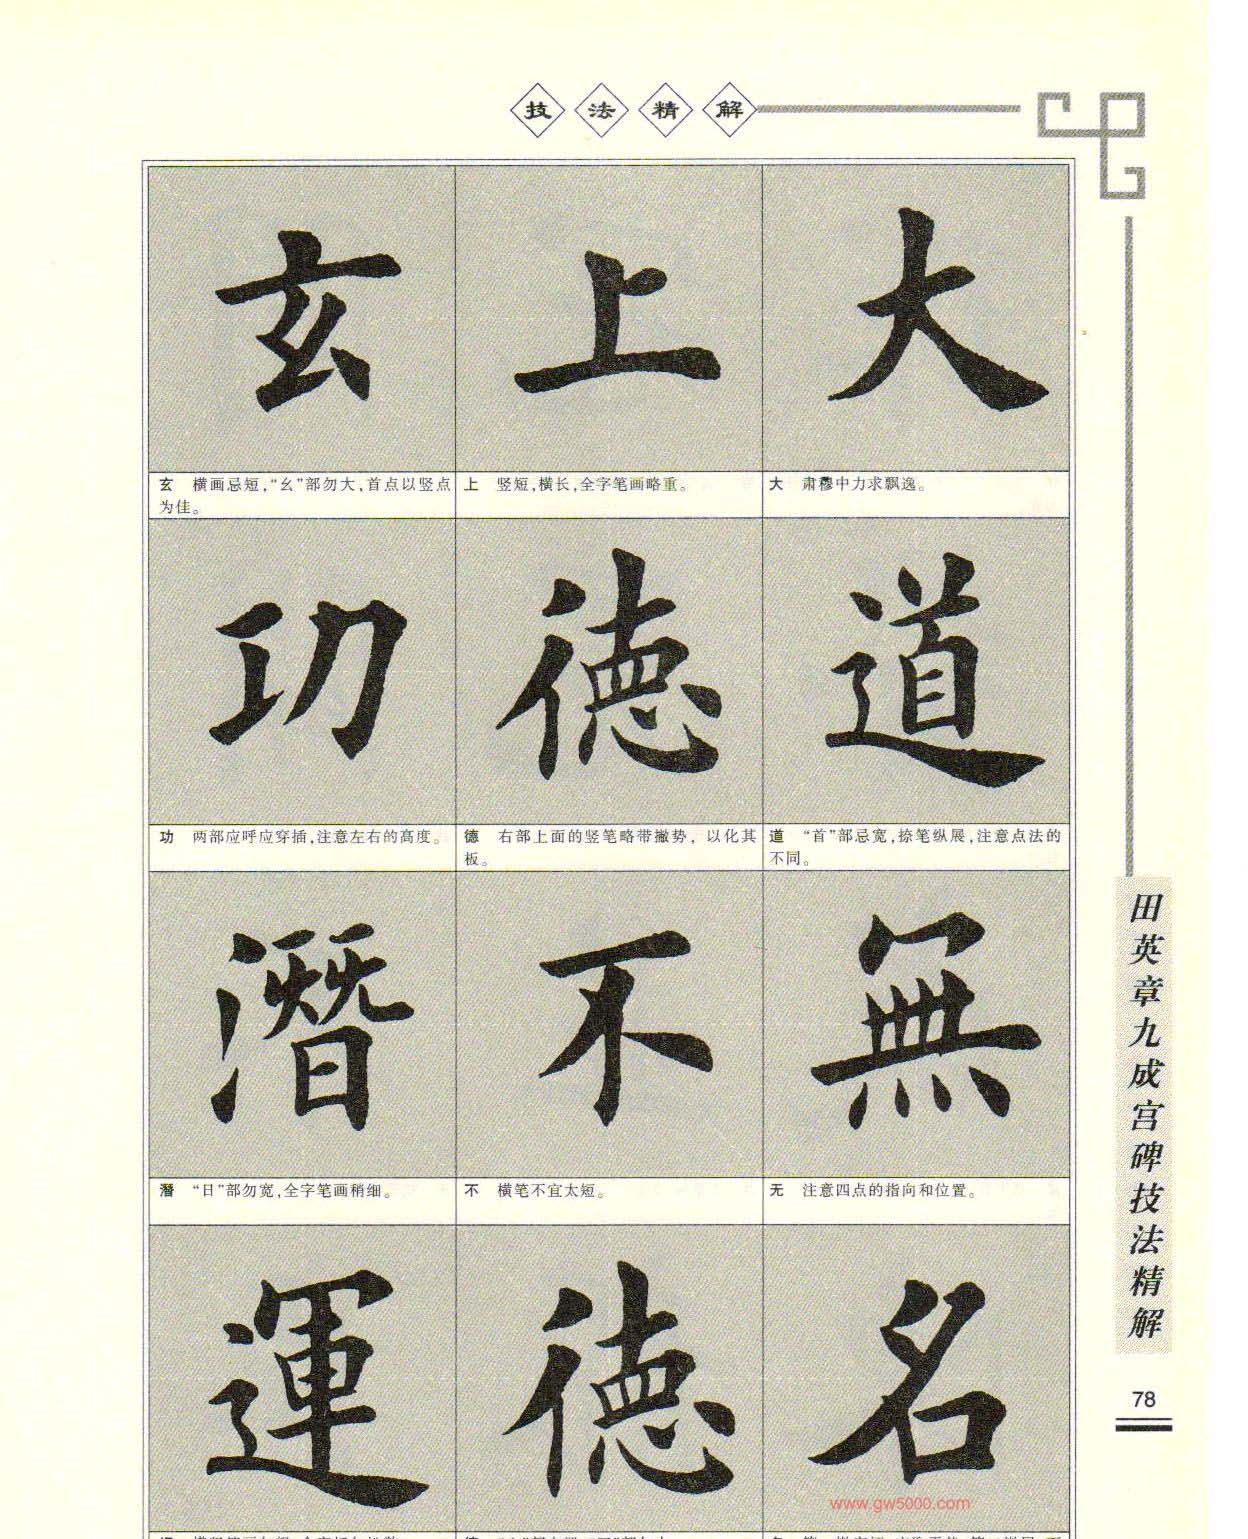 技法精解
玄 上 大
玄 横画忌短,“幺”部勿大,首点以竖点
为佳。
上 竖短,横长,全字笔画略重。
大 肃穆中力求飘逸。
功 德 道
功 两部应呼应穿插,注意左右的高度。
德 右部上面的竖笔略带撇势，以化其
板。
道 “首”部忌宽,捺笔纵展,注意点法的
不同。
潛 不 無
潜 “日”部勿宽,全字笔画稍细。
不 横笔不宜太短。
无 注意四点的指向和位置。
運 德 名
www.gw5000.com
田英章九成宫碑技法精解
78